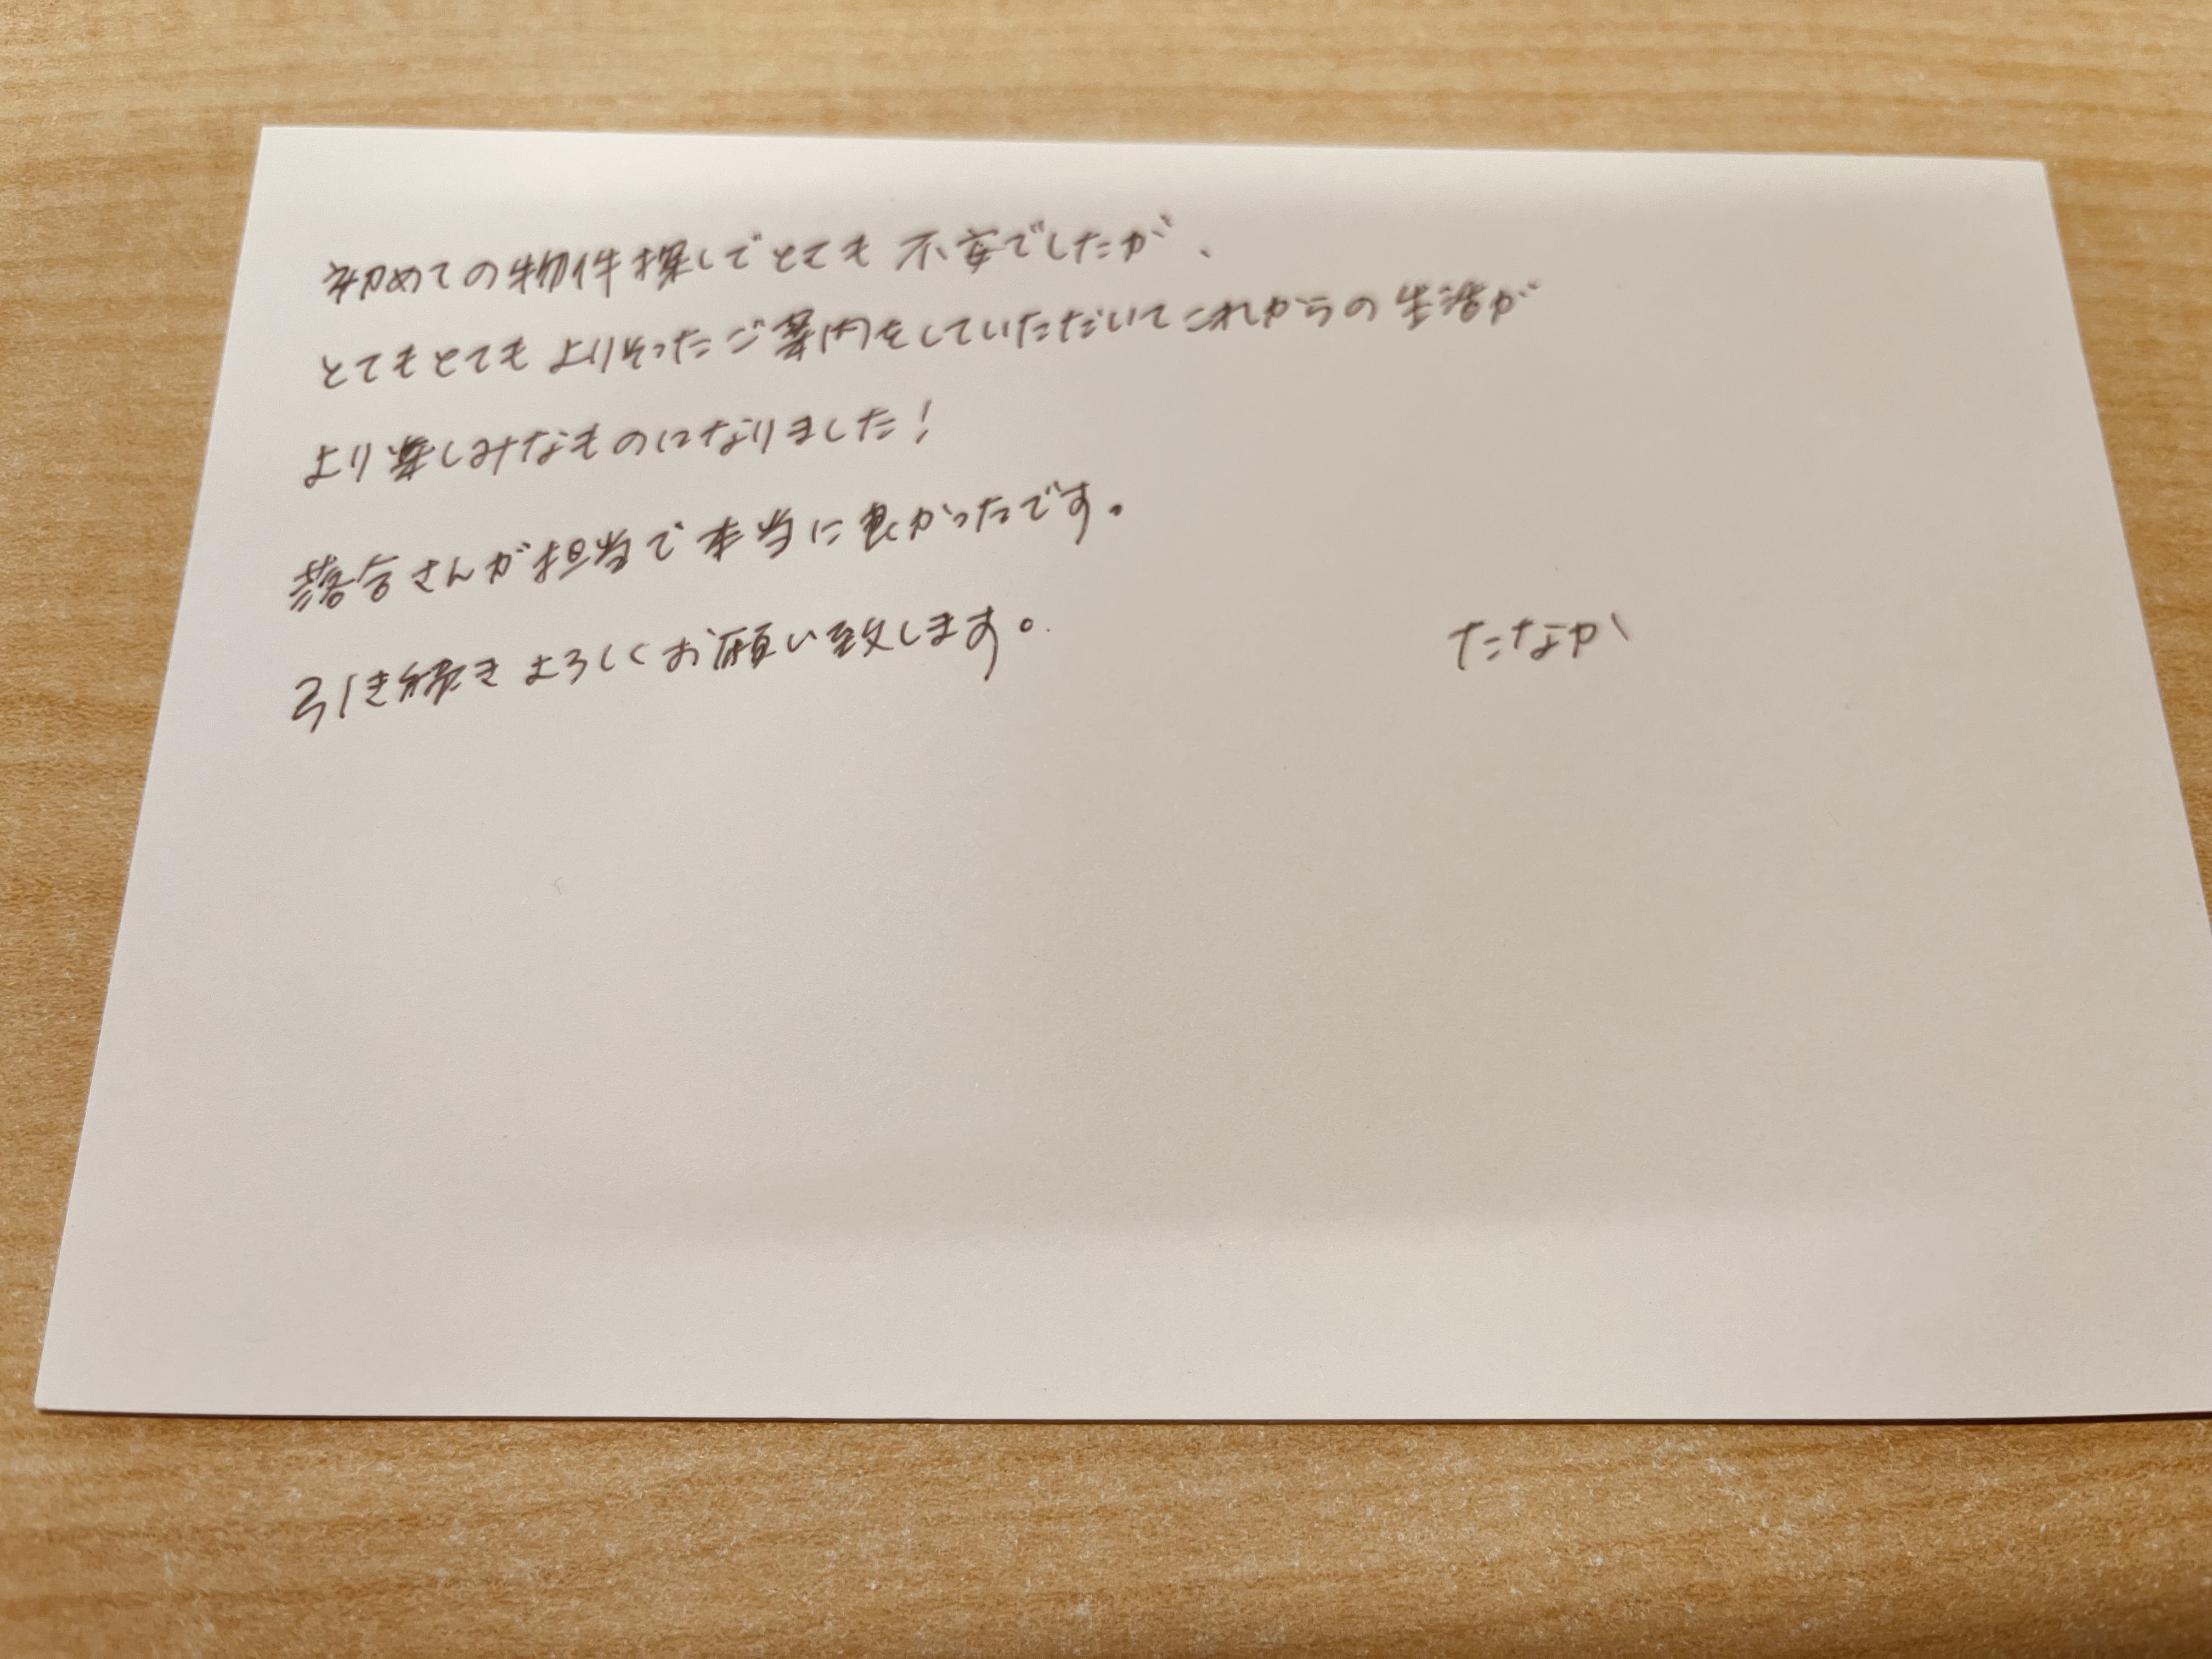 初めての物件探しでとても不安でしたが、
とてもとてもよりそったご案内をしていただいてこれからの生活が
より楽しみなものになりました!
落合さんが担当で本当に良かったです。
引き続きよろしくお願い致します。
たなか